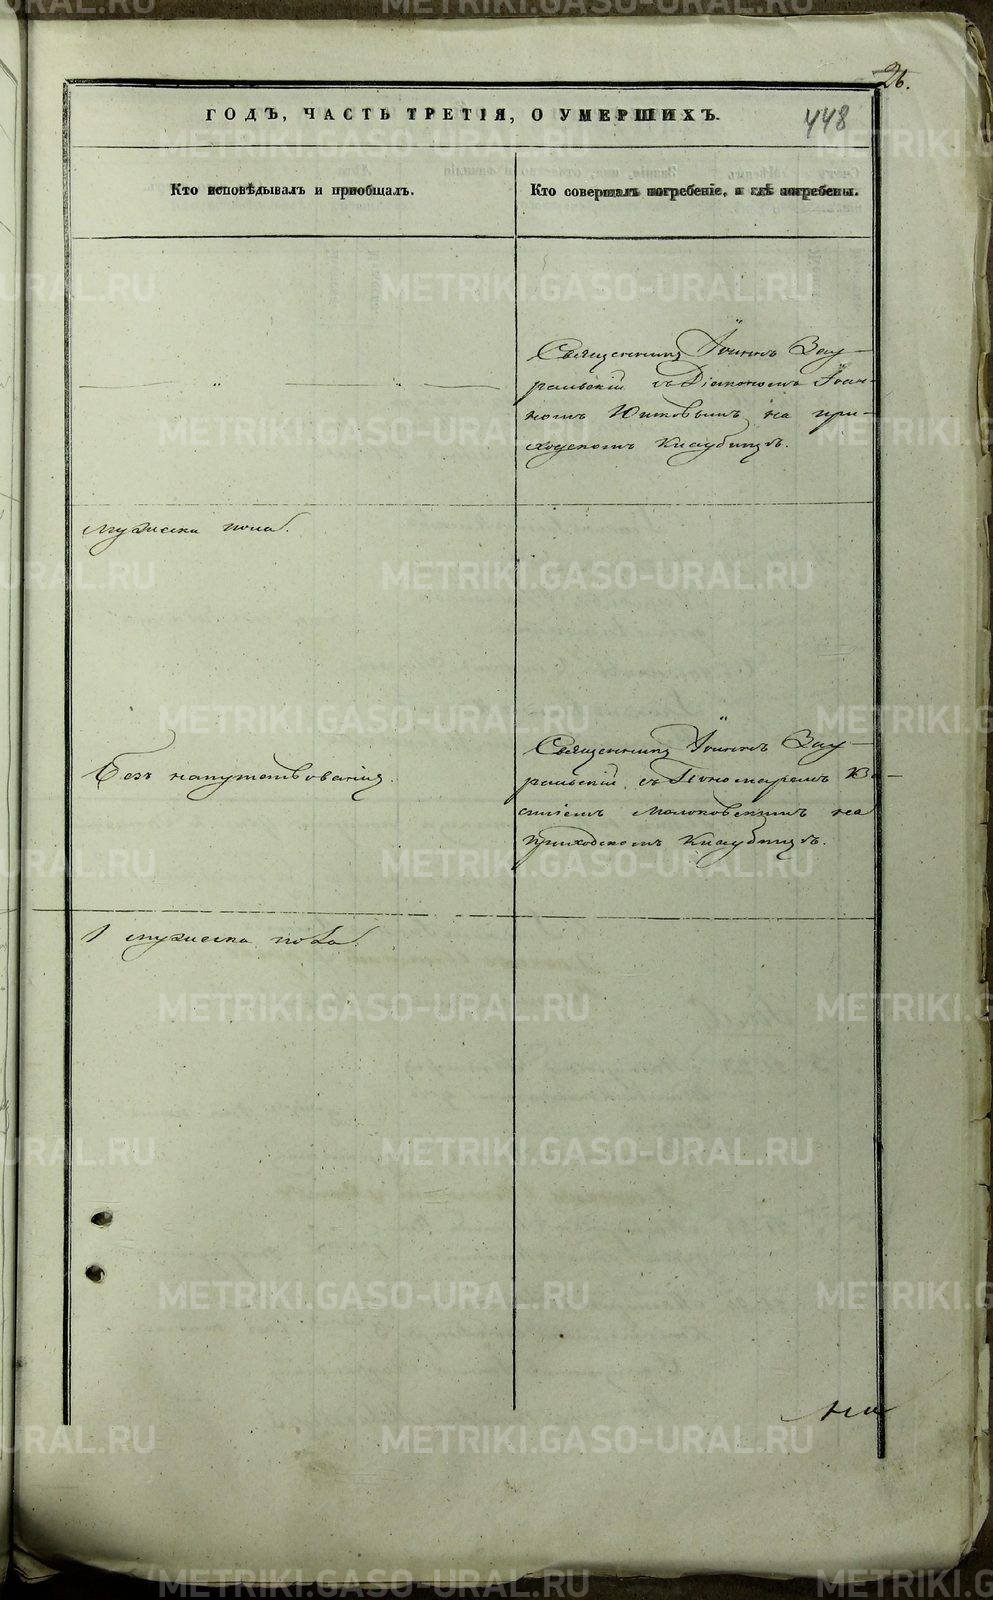 26.
448
ГОДЪ, ЧАСТЬ ТРЕТІЯ, О УМЕРШИХЪ.
Кто исповѣдывалъ и пріобщалъ.
Кто совершалъ погребеніе, и гдѣ погребены.
Священникъ Іоаннъ Зау-
ральскій съ Діакономъ Іоан-
номъ на при-
ходскомъ кладбищѣ.
мужеска пола.
Безъ напутствованія.
Священникъ Іоаннъ Зау-
ральскій съ Пономаремъ Ва-
силіемъ на
приходскомъ кладбищѣ.
1 мужеска пола.
METRIKI.GASO-URAL.RU